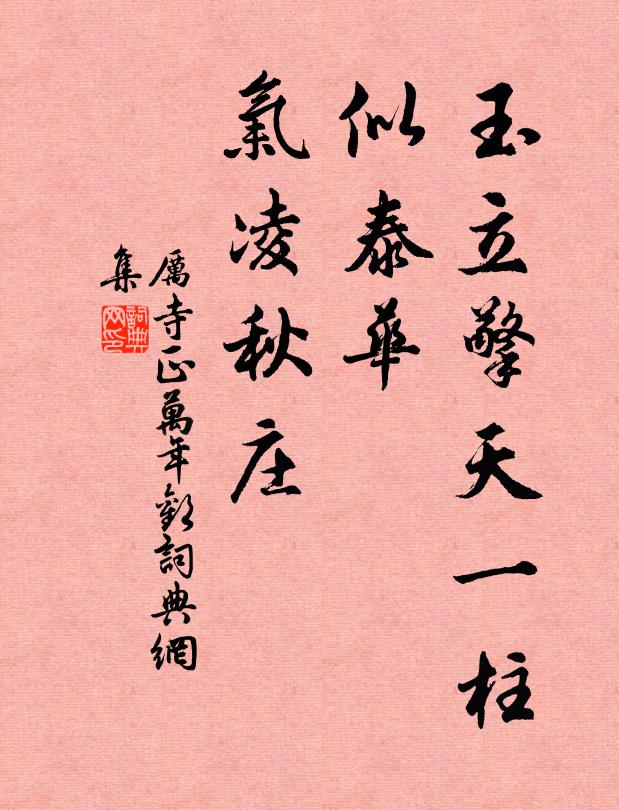 玉立擎天一柱
似泰華
氣凌秋庄
厲寺正萬年歡詞典網
集
詞典
网印